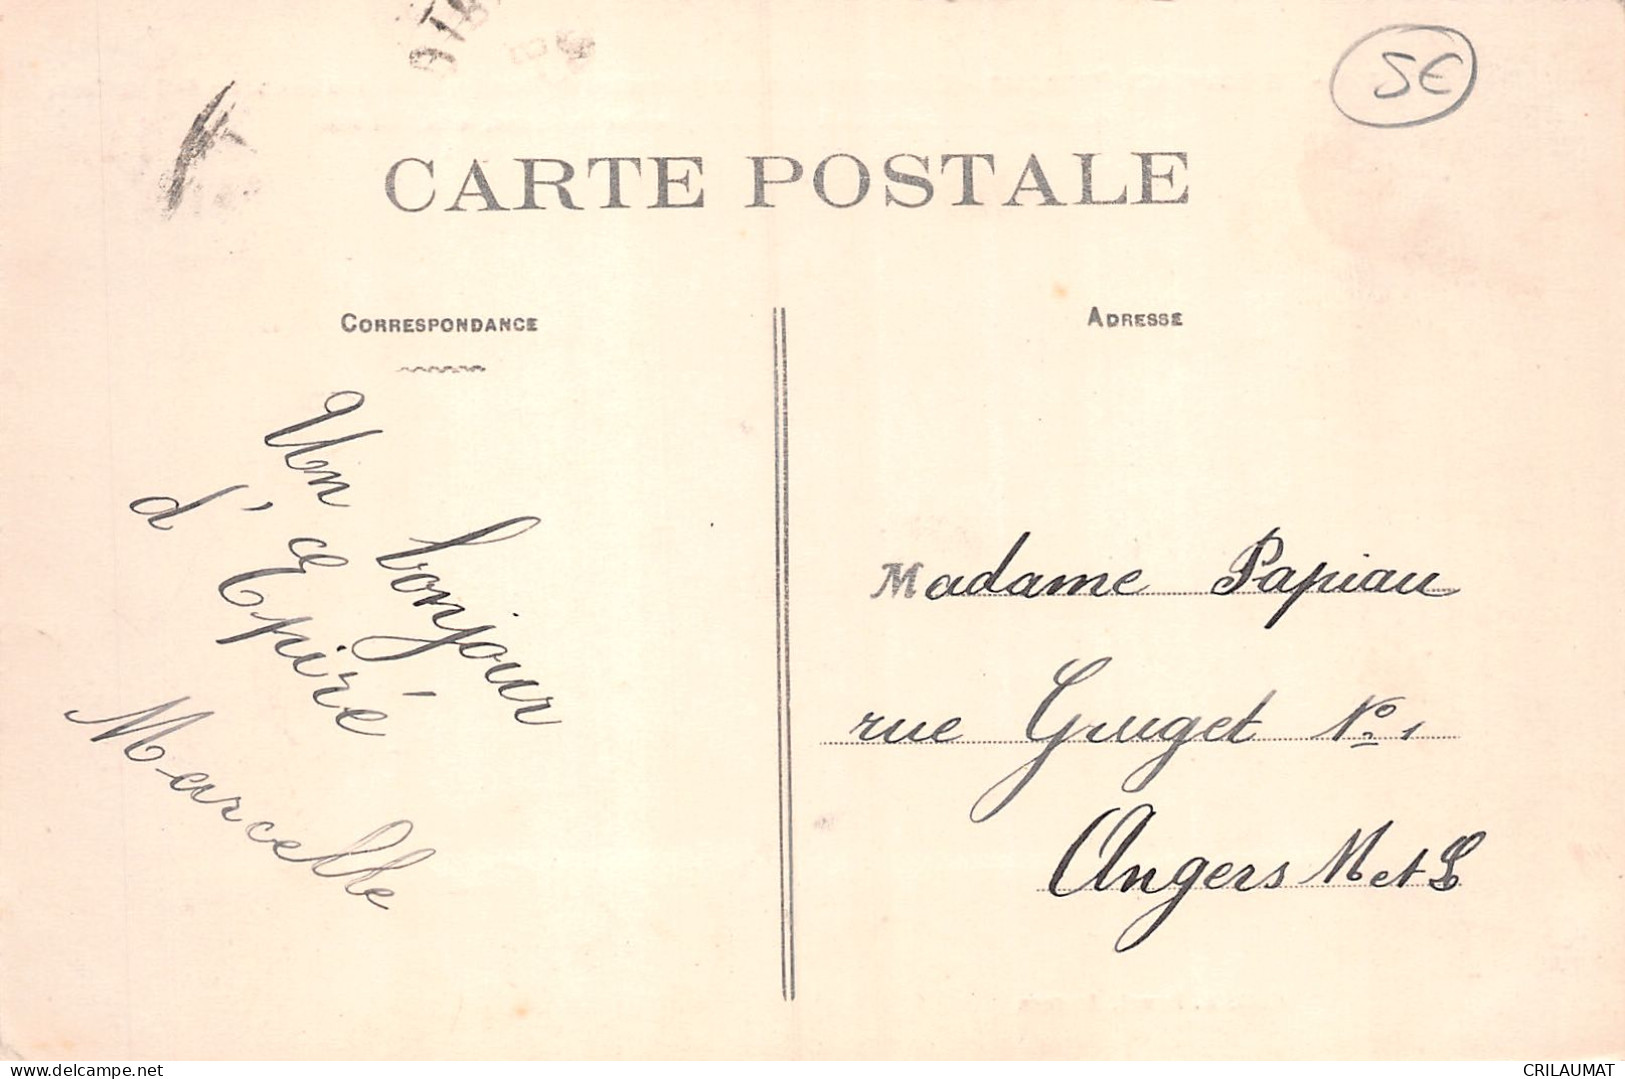 5€
CARTE POSTALE
CORRESPONDANCE
ADRESSE
Un bonjour
d'ce Epiré
Marcelle
Madame Papiau
rue Gruget No 1
Angers M et L
www.delcampe.net
CRILAUMAT